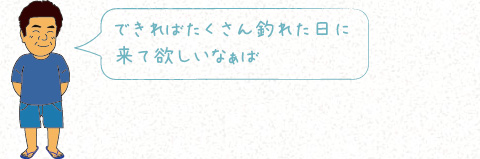 できればたくさん釣れた日に
来て欲しいなぁば